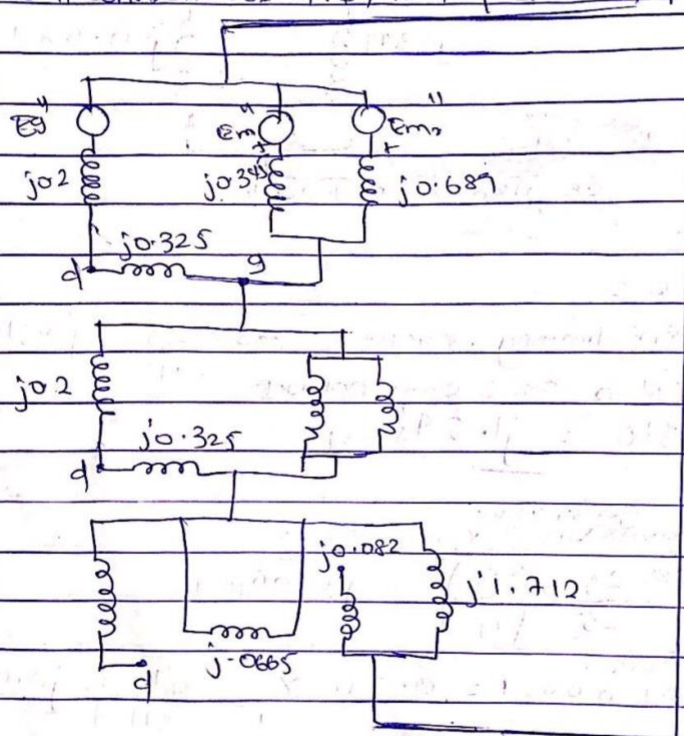 Eg" Em" Em2"
j0.2 j0.345 j0.689
j0.325
d g
j0.2
j0.325
d
j0.082
j1.712
j.0665
d